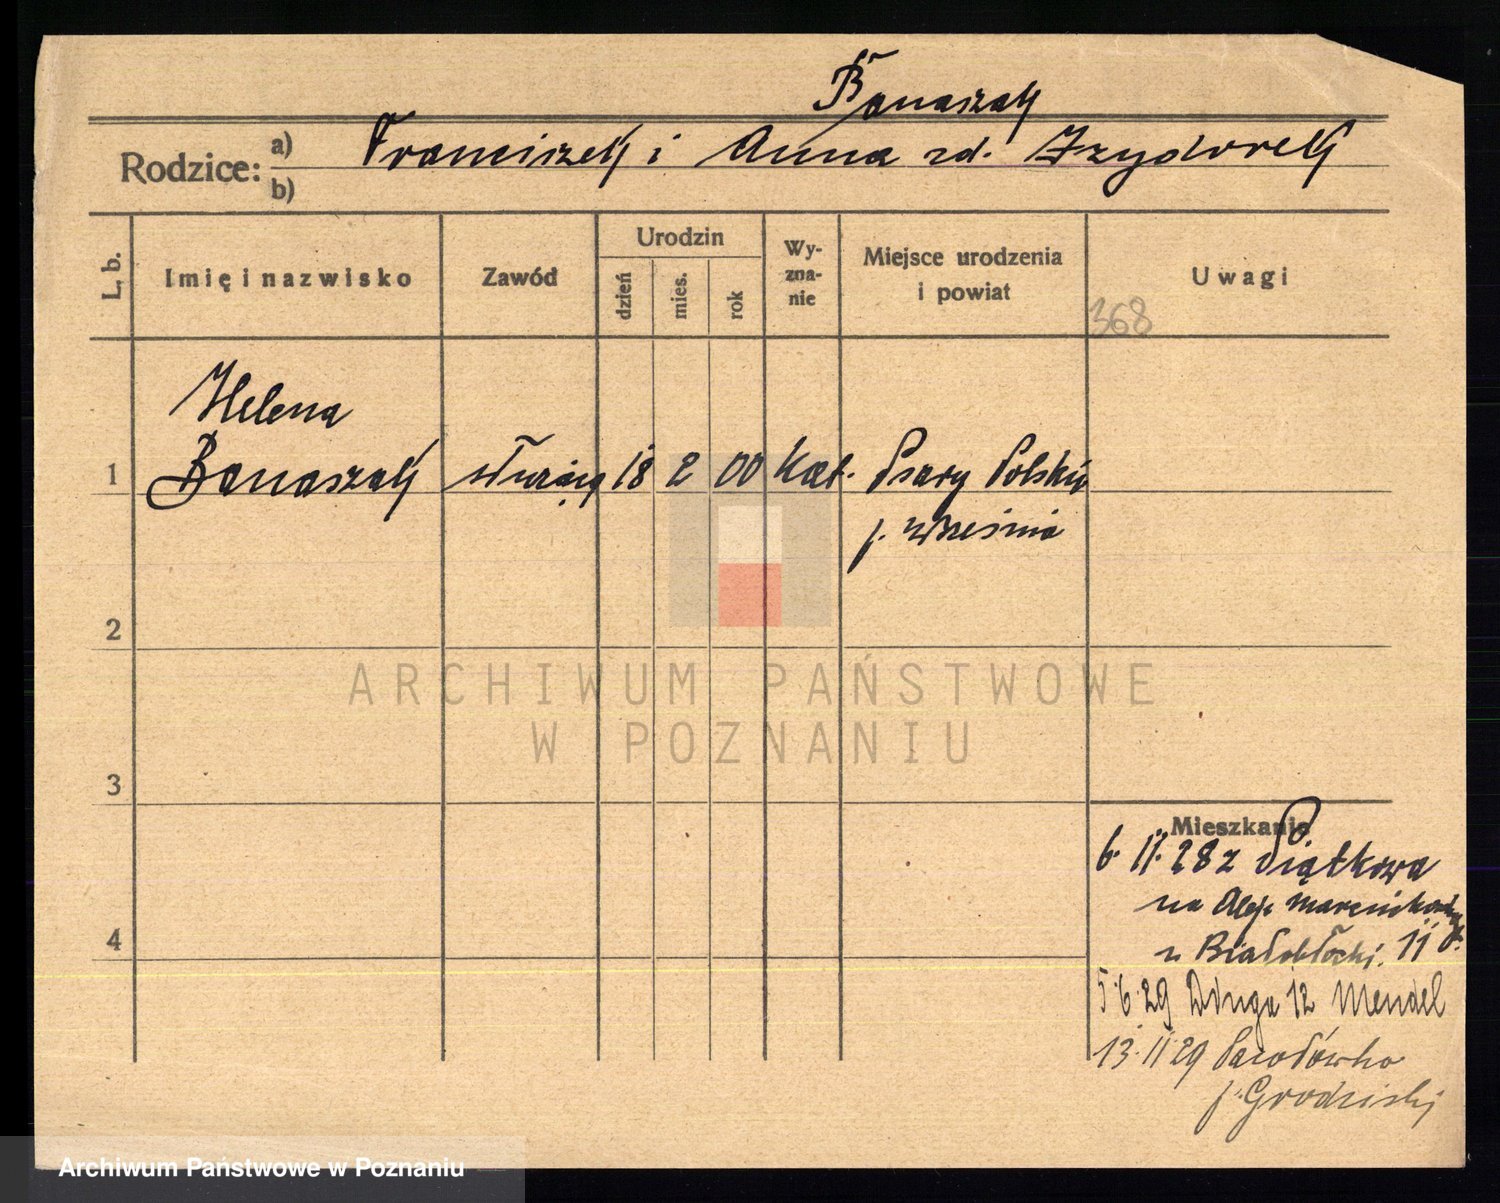 Banaszak
Rodzice: a) Franciszek i Anna zd. Izydorek
b)
L. b.
Imię i nazwisko
Zawód
Urodzin
dzień
mies.
rok
Wy-
zna-
nie
Miejsce urodzenia
i powiat
Uwagi
368
Helena
1 Banaszak służąca 18 2 00 kat. Psary Polskie
p. Września
2
3
4
ARCHIWUM PAŃSTWOWE
W POZNANIU
Mieszkanie
6. 11. 28 z Piątkowa
na Aleje Marcinkowskiego
u Białobłocki. 11
5.6.29 Długa 12 Mendel
13.11.29
p. Grodziski
Archiwum Państwowe w Poznaniu